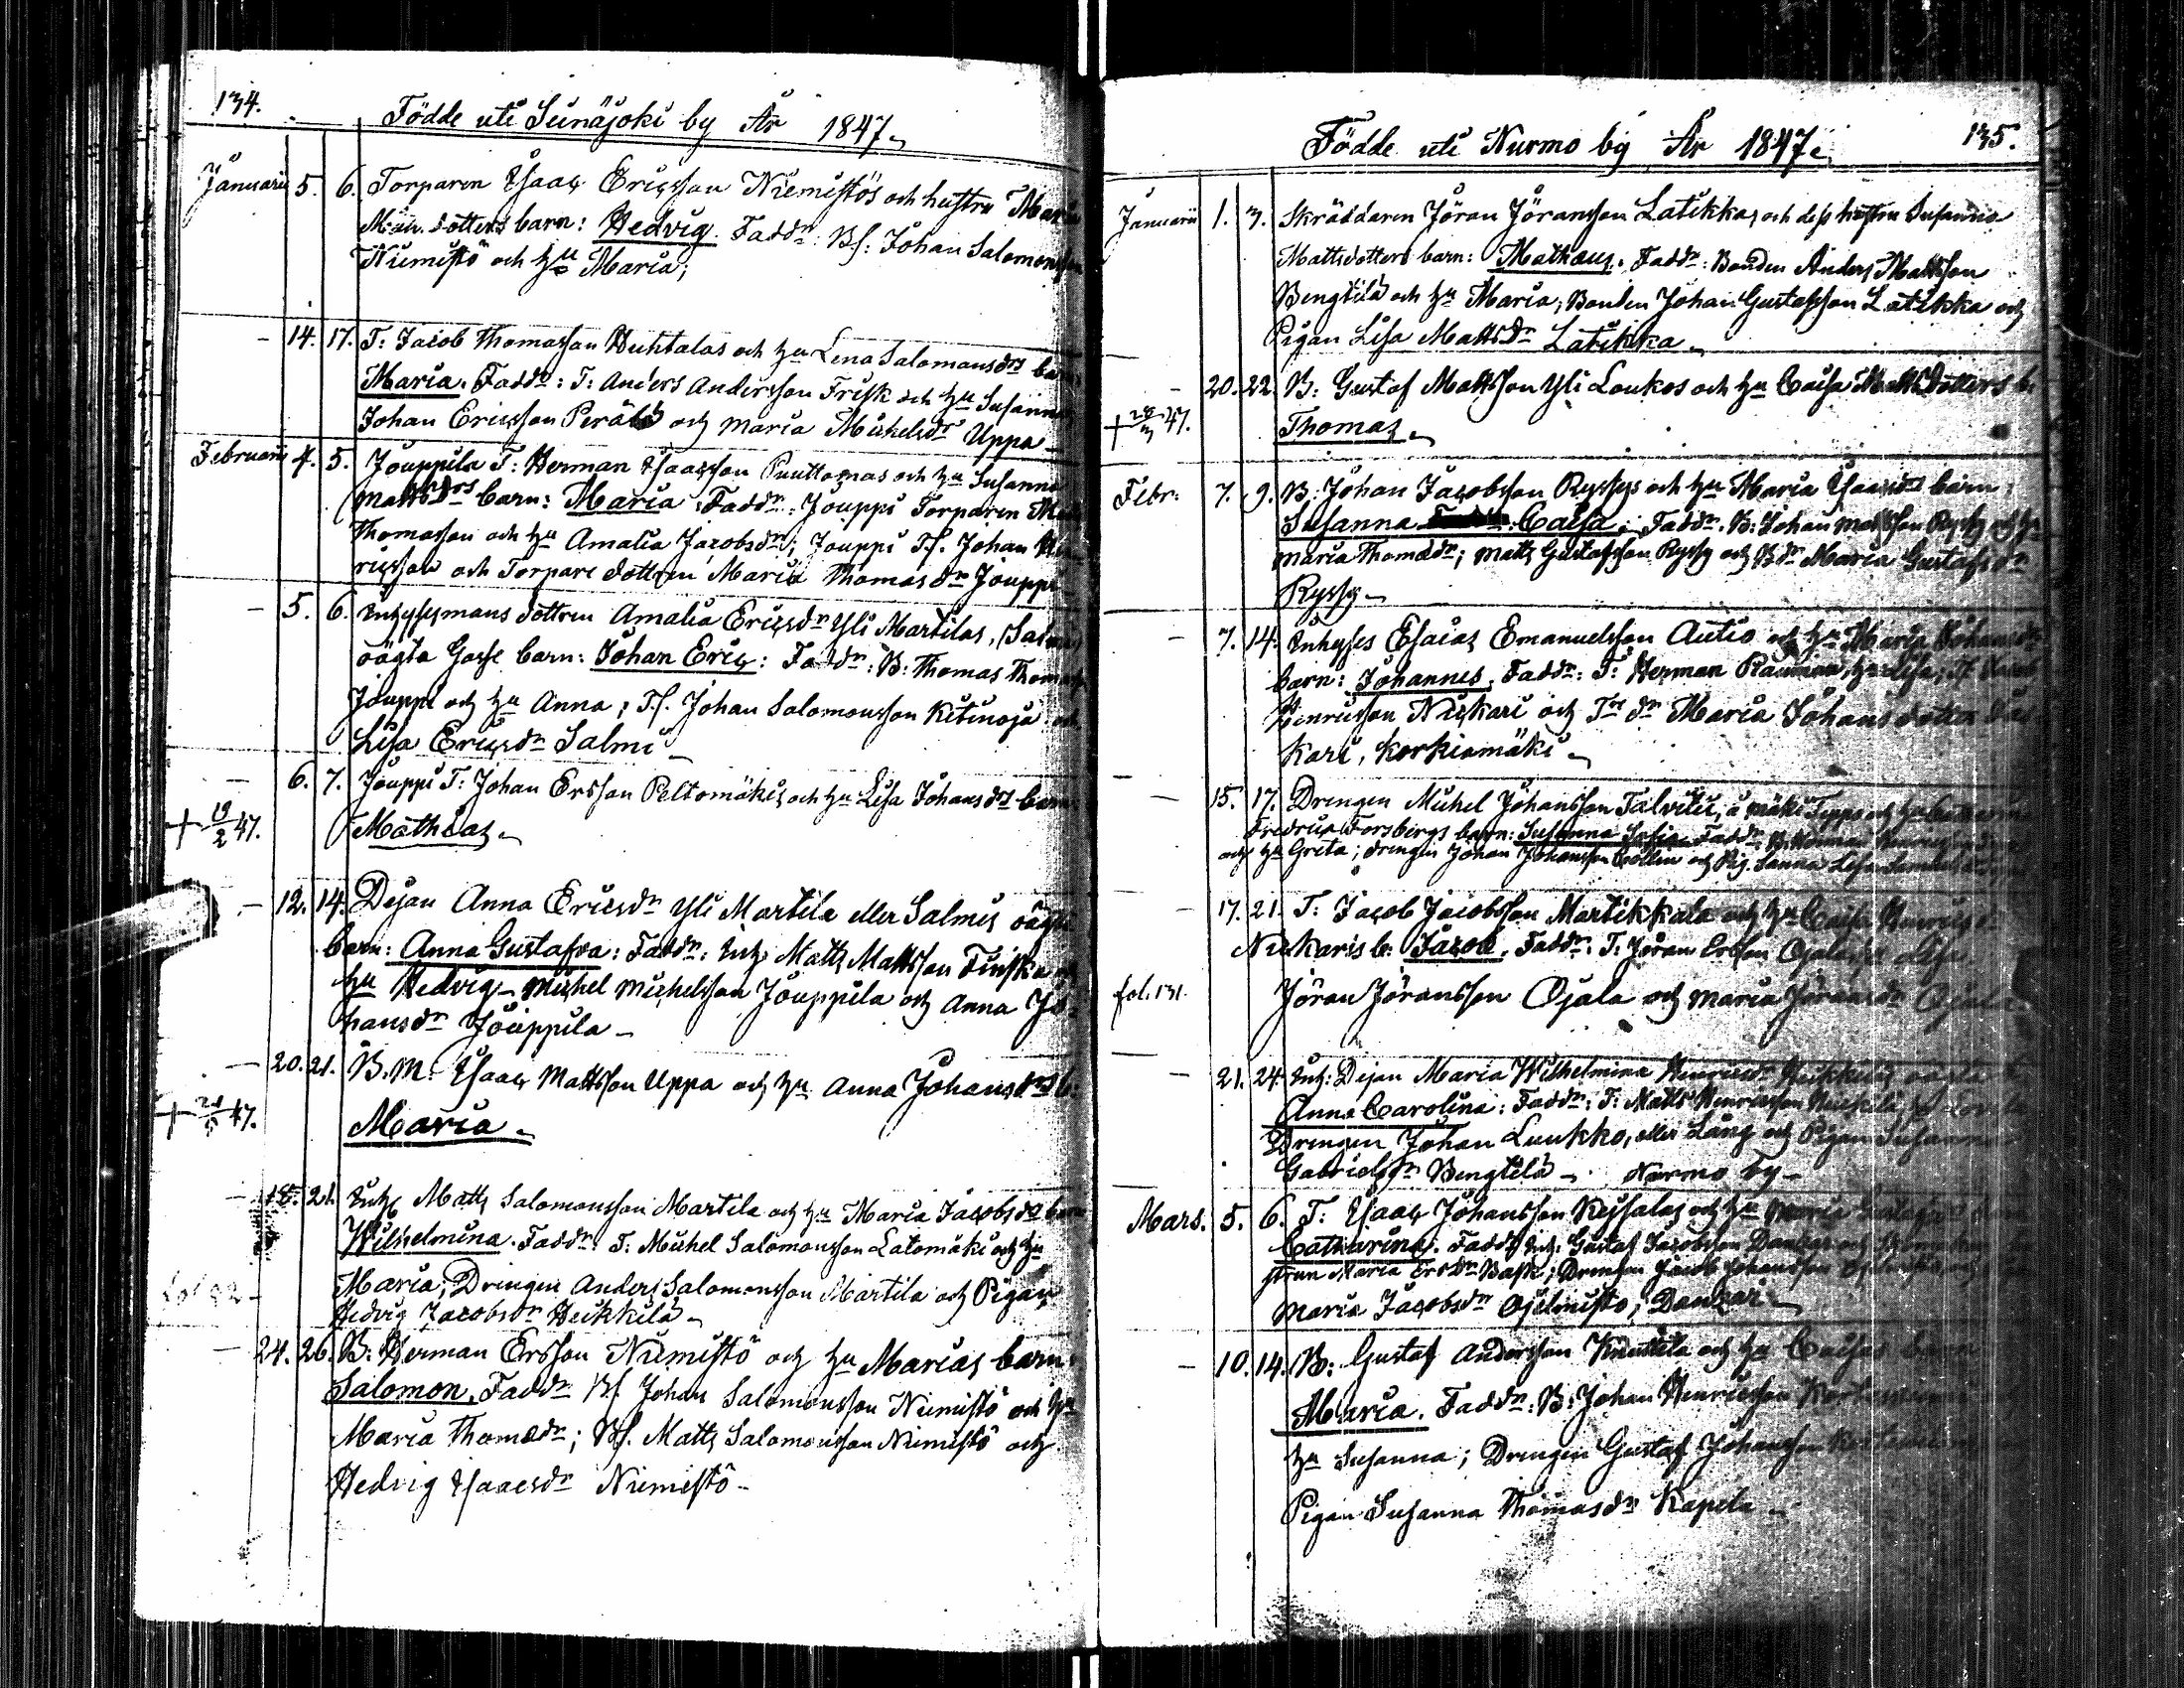 134.
Födde uti Seinäjoki by År 1847.
Januarii 5. 6. Torparen Isaac Ericsson Niemistös och hustru Maria
Mich.dotters barn: Hedvig. Faddr: Bs. Johan Salomonsson
Niemistö och hu Maria;
- 14. 17. T: Jacob Thomasson Huhtalas och hu Lena Salomonsdrs barn
Maria. Faddr: T: Anders Andersson Frisk och hu Susanna
Johan Ericsson Perälä och Maria Michelsdr Uppa -
Februarii 4. 5. Jouppila T: Herman Isaacsson Puuttomas och hu Susanna
Mattsdrs barn: Maria. Faddr: Jouppi Torparen
Thomasson och hu Amalia Jacobsdr; Jouppi Ts. Johan Hen
ricsson och Torpare dottren Maria Thomasdr Jouppi
- 5. 6. Inhysesmans dottren Amalia Ericsdr Yli Martilas, (Salmi)
oägta Gosse barn: Johan Eric: Faddr: B: Thomas Thomass
Jouppi och hu Anna; Ts. Johan Salomonsson Kitinoja och
Lisa Ericsdr Salmi -
- 6. 7. Jouppi T: Johan Ersson Peltomäkis och hu Lisa Johansdrs barn
+ 19/2 47. Mathias.
- 12. 14. Dejan Anna Ericsdr Yli Martila eller Salmis oägta
barn: Anna Gustafva: Faddr: Inh. Matts Mattsson Finska och
hu Hedvig - Michel Michelsson Jouppila och Anna Jo
hansdr Jouppila -
- 20. 21. B. M: Isaac Mattsson Uppa och hu Anna Johansdrs b:
+ 47. Maria.
- 18. 21. Inh. Matts Salomonsson Martila och hu Maria Jacobsdrs barn
Wilhelmina. Faddr: T: Michel Salomonsson Latomäki och hu
Maria; Drengen Anders Salomonsson Martila och Pigan
Hedvig Jacobsdr Heikkilä -
- 24. 26. B: Herman Ersson Niemistö och hu Marias barn
Salomon. Faddr Bs. Johan Salomonsson Niemistö och hu
Maria Thomædr; Bs. Matts Salomonsson Niemistö och
Hedvig Isaacsdr Niemistö -
Födde uti Nurmo by År 1847.
135.
Januarii 1. 3. Skräddaren Jöran Jöransson Latikkas och dess hustru Susanna
Mattsdotters barn: Mathæus. Faddr: Bonden Anders Mattsson
Bengtilä och hu Maria; Bonden Johan Gustafsson Latikka och
Pigan Lisa Mattsdr Latikka.
- 20. 22. B: Gustaf Mattsson Yli Loukos och hu Caisa Mattsdotters b:
+ 28/3 47. Thomas.
Febr: 7. 9. B: Johan Jacobsson Ryssys och hu Maria Isaacsdrs barn:
Susanna Caisa: Faddr: B: Johan Mattsson Ryssy och hu
Maria Thomædr; Matts Gustafsson Ryssy och Bdr Maria Gustafsdr
Ryssy -
- 7. 14. Inhyses Esaias Emanuelsson Autio och hu Maria Johansdr
barn: Johannes. Faddr: T: Herman hu Lisa;
Henricsson Niskari och Tre dr Maria Johansdotter
kari, Korkiamäki -
- 15. 17. Drengen Michel Johansson Talvitie, å mäki Seppo och hu
Fredrica Forsbergs barn: Susanna Sofia. Faddr: B.
och hu Greta; drengen Johan Johansson Collin och Pig. Sanna Lisa
- 17. 21. T: Jacob Jacobsson Martikkala och hu Caisa Henricsdr
Niskaris b: Jacob. Faddr: T: Jöran Ersson Ojala hu Lisa
fol. 131. Jöran Jöransson Ojala och Maria Jöransdr Ojala
- 21. 24. Inh: Dejan Maria Wilhelmina Henricsdr Heikkiläs oägta
Anna Carolina: Faddr: T: Matts Henricsson Heikkilä
Drengen Johan Luukko, eller Lång och Pigan Susanna
Gabrielsdr Bengtilä - Nurmo by -
Mars. 5. 6. T: Isaac Johansson Keisalas och hu Maria
Catharina. Faddr Inh. Gustaf Jacobsson Danzar och
strun Maria Ersdr Bask; Drengen Jacob Johansson
Maria Jacobsdr Ojelmisto, Danzar -
- 10. 14. B: Gustaf Andersson Knuttila och hu Caisas barn
Maria. Faddr: B: Johan Henricsson
hu Susanna; Drengen Gustaf Johansson
Pigan Susanna Thomasdr Kapila -